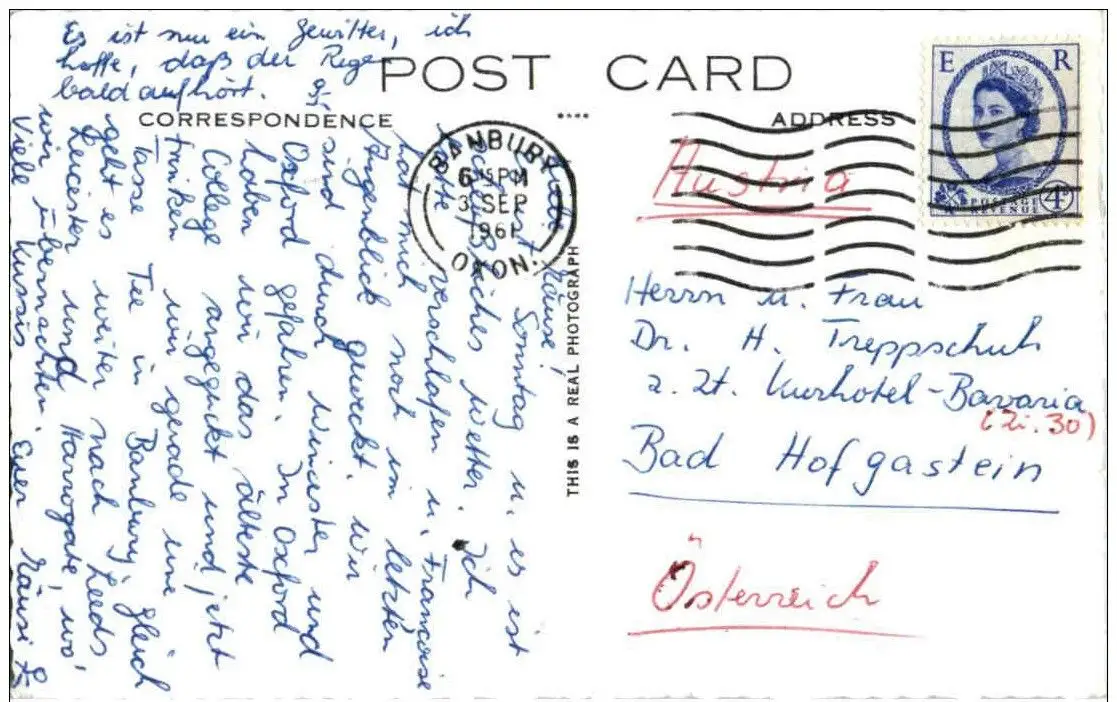 Es ist nur ein Gewitter, ich
hoffe, daß der Regen
bald aufhört.
POST CARD
CORRESPONDENCE
ADDRESS
Mäuse!
ist Sonntag u. es ist
Wetter. Ich
hatte verschlafen u. Francoise
hat mich noch im letzten
Augenblick geweckt. Wir
sind durch Winister und
Oxford gefahren. In Oxford
haben wir das älteste
College angeguckt und jetzt
trinken wir gerade eine
Tasse Tee in Banbury, gleich
geht es weiter nach Leeds
Leicester und Harrogate, wo
wir übernachten.
Viele Kussis Euer Mäusi
BANBURY
6 15 PM
3 SEP
1961
OXON.
THIS IS A REAL PHOTOGRAPH
E R
POSTAGE
REVENUE
4D
Austria
Herrn u. Frau
Dr. H. Treppschuh
z. Zt. Kurhotel-Bavaria
(Zi. 30)
Bad Hofgastein
Österreich